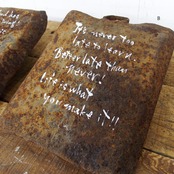 It's never too
late to learn.
Better late than
never!
Life is what
you make it!!